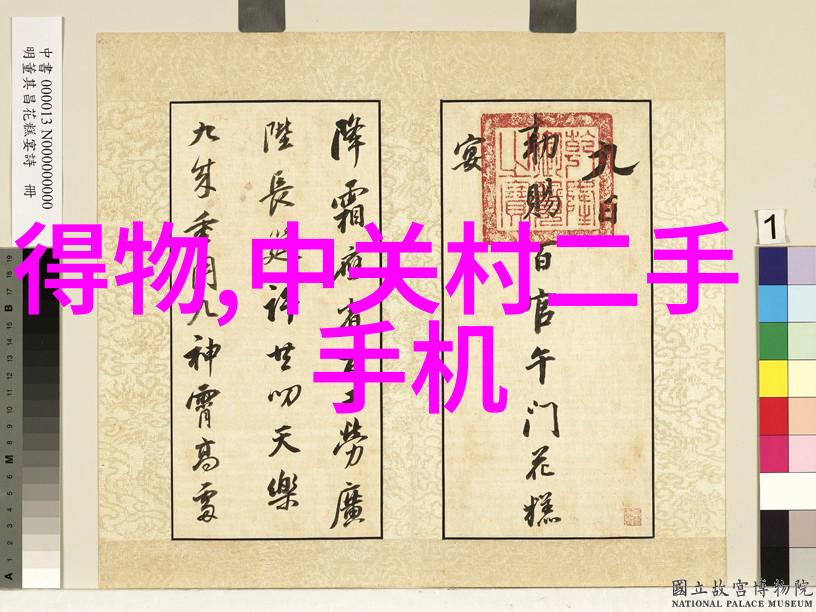 得物,中关村二手
手机
九日
勅賜百官午門花糕
宴
降霜
勞廣
陛長
許共叨天樂
九成重
九神霄高
中書 000013 N000000000
明董其昌花糕宴詩 冊
乾隆
之寶
1
B
M
A
國立故宮博物院
NATIONAL PALACE MUSEUM